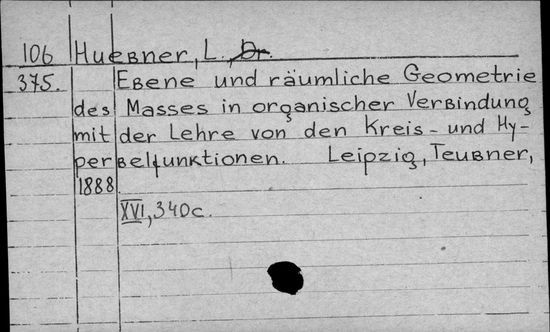 106 Huebner, L. Dr.
375. Ebene und räumliche Geometrie
des Masses in organischer Verbindung
mit der Lehre von den Kreis- und Hy-
perbelfunktionen. Leipzig, Teubner,
1888
XVI, 340 c.